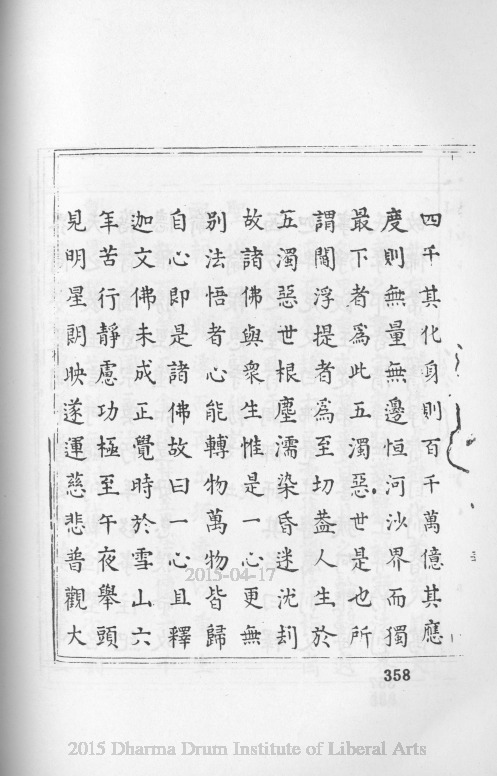 四千其化身則百千萬億其應
度則無量無邊恒河沙界而獨
最下者爲此五濁惡世是也所
謂閻浮提者爲至切葢人生於
五濁惡世根塵濡染昏迷沈刦
故諸佛與衆生惟是一心更無
別法悟者心能轉物萬物皆歸
自心即是諸佛故曰一心且釋
迦文佛未成正覺時於雪山六
年苦行靜慮功極至午夜舉頭
見明星朗映遂運慈悲普觀大
358
2015-04-17
2015 Dharma Drum Institute of Liberal Arts